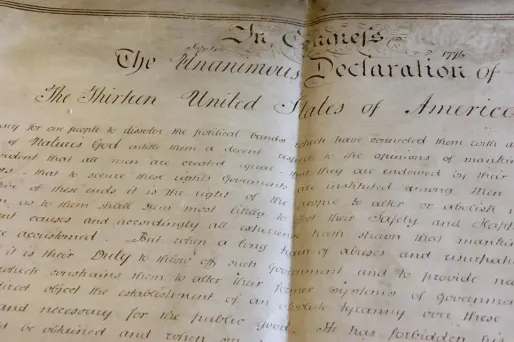 In Congress 1776
The Unanimous Declaration of
The Thirteen United States of America
for one people to dissolve the political bands which have connected them with
of Natures God entitle them a decent respect to the opinions of mankin
that all men are created equal that they are endowed by their
that to secure these rights Governments are instituted among Men
of these ends it is the right of the people to alter or abolish
as to them shall seem most likely to effect their Safety and Happ
ent causes and accordingly all experience hath shewn that mankin
re accustomed. But when a long train of abuses and usurpati
it is their Duty to throw off such Government and to provide ne
which constrains them to alter their former systems of governme
object the establishment of an absolute tyranny over these
and necessary for the public good. He has forbidden his
be obtained and when